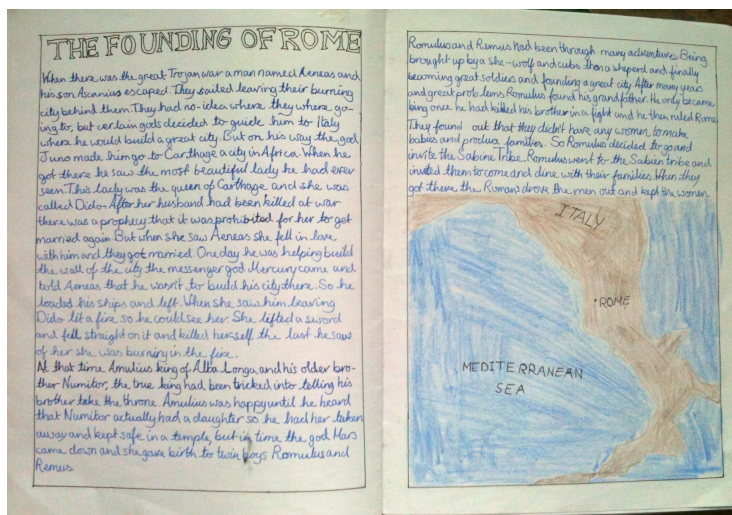 THE FOUNDING OF ROME
When there was the great Trojan war a man named Aeneas and
his son Ascanius escaped. They sailed leaving their burning
city behind them. They had no-idea where they where go-
ing to, but certain gods decided to guide him to Italy
where he would build a great city. But on his way the god
Juno made him go to Carthage a city in Africa. When he
got there he saw the most beautiful lady he had ever
seen. This lady was the queen of Carthage and she was
called Dido. After her husband had been killed at war
there was a prophecy that it was prohibited for her to get
married again. But when she saw Aeneas she fell in love
with him and they got married. One day he was helping build
the wall of the city the messenger god Mercury came and
told Aeneas that he wasn't to build his city there. So he
loaded his ships and left. When she saw him leaving
Dido lit a fire so he could see her. She lifted a sword
and fell straight on it and killed herself the last he saw
of her she was burning in the fire.
At that time Amulius king of Alba Longa and his older bro-
ther Numitor, the true king had been tricked into telling his
brother take the throne. Amulius was happy until he heard
that Numitor actually had a daughter so he had her taken
away and kept safe in a temple, but in time the god Mars
came down and she gave birth to twin boys Romulus and
Remus
Romulus and Remus had been through many adventures. Being
brought up by a she-wolf and cubs than a sheperd and finally
becoming great soldiers and founding a great city. After many years
and great problems Romulus found his grandfather. He only became
king once he had killed his brother in a fight and he then ruled Rome.
They found out that they didn't have any women to make
babies and produce families. So Romulus decided to go and
invite the Sabine Tribe. Romulus went to the Sabien tribe and
invited them to come and dine with their families. When they
got there the Rumans drove the men out and kept the women
ITALY
ROME
MEDITERRANEAN
SEA